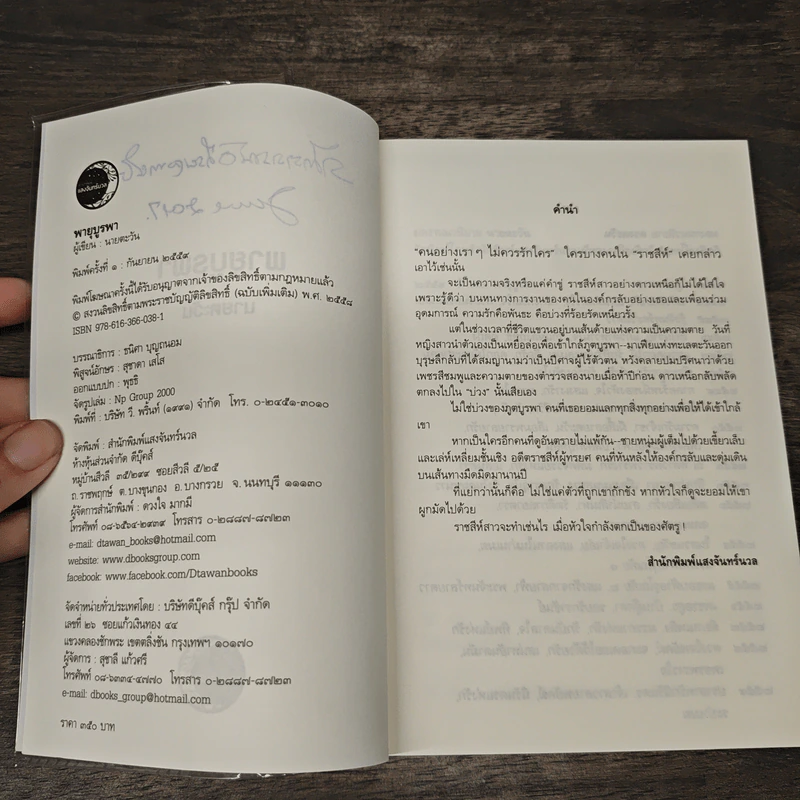 แสงจันทร์นวล
June 2017.
พายุบูรพา
ผู้เขียน : นายตะวัน
พิมพ์ครั้งที่ ๑ : กันยายน ๒๕๕๙
พิมพ์โฆษณาครั้งนี้ได้รับอนุญาตจากเจ้าของลิขสิทธิ์ตามกฎหมายแล้ว
© สงวนลิขสิทธิ์ตามพระราชบัญญัติลิขสิทธิ์ (ฉบับเพิ่มเติม) พ.ศ. ๒๕๕๘
ISBN 978-616-366-038-1
บรรณาธิการ : ธนิศา บุญถนอม
พิสูจน์อักษร : สุชาดา เสโส
ออกแบบปก : พุธธิ
จัดรูปเล่ม : Np Group 2000
พิมพ์ที่ : บริษัท วี. พริ้นท์ (๑๙๙๑) จำกัด โทร. ๐-๒๔๕๑-๓๐๑๐
จัดพิมพ์ : สำนักพิมพ์แสงจันทร์นวล
ห้างหุ้นส่วนจำกัด ดีบุ๊คส์
หมู่บ้านสีวลี ๓๕/๒๙๙ ซอยสีวลี ๕/๒๕
ถ.ราชพฤกษ์ ต.บางขุนกอง อ.บางกรวย จ.นนทบุรี ๑๑๑๓๐
ผู้จัดการสำนักพิมพ์ : ดวงใจ มากมี
โทรศัพท์ ๐๘-๖๕๖๔-๒๙๓๙ โทรสาร ๐-๒๘๘๗-๘๗๒๓
e-mail: dtawan_books@hotmail.com
website: www.dbooksgroup.com
facebook: www.facebook.com/Dtawanbooks
จัดจำหน่ายทั่วประเทศโดย : บริษัทดีบุ๊คส์ กรุ๊ป จำกัด
เลขที่ ๒๖ ซอยแก้วเงินทอง ๔๔
แขวงคลองชักพระ เขตตลิ่งชัน กรุงเทพฯ ๑๐๑๗๐
ผู้จัดการ : สุชาลี แก้วศรี
โทรศัพท์ ๐๘-๖๓๓๔-๔๗๗๐ โทรสาร ๐-๒๘๘๗-๘๗๒๓
e-mail: dbooks_group@hotmail.com
ราคา ๓๕๐ บาท
คำนำ
"คนอย่างเรา ๆ ไม่ควรรักใคร" ใครบางคนใน "ราชสีห์" เคยกล่าว
เอาไว้เช่นนั้น
จะเป็นความจริงหรือแค่คำขู่ ราชสีห์สาวอย่างดาวเหนือก็ไม่ได้ใส่ใจ
เพราะรู้ดีว่า บนหนทางการงานของคนในองค์กรลับอย่างเธอและเพื่อนร่วม
อุดมการณ์ ความรักคือพันธะ คือบ่วงที่ร้อยรัดเหนี่ยวรั้ง
แต่ในช่วงเวลาที่ชีวิตแขวนอยู่บนเส้นด้ายแห่งความเป็นความตาย วันที่
หญิงสาวนำตัวเองเป็นเหยื่อล่อเพื่อเข้าใกล้ภูตบูรพา--มาเฟียแห่งทะเลตะวันออก
บุรุษลึกลับที่ได้สมญานามว่าเป็นปีศาจผู้ไร้ตัวตน หวังคลายปมปริศนาว่าด้วย
เพชรสีชมพูและความตายของตำรวจสองนายเมื่อห้าปีก่อน ดาวเหนือกลับพลัด
ตกลงไปใน "บ่วง" นั้นเสียเอง
ไม่ใช่บ่วงของภูตบูรพา คนที่เธอยอมแลกทุกสิ่งทุกอย่างเพื่อให้ได้เข้าใกล้
เขา
หากเป็นใครอีกคนที่ดูอันตรายไม่แพ้กัน--ชายหนุ่มผู้เต็มไปด้วยเขี้ยวเล็บ
และเล่ห์เหลี่ยมชั้นเชิง อดีตราชสีห์ผู้ทรยศ คนที่หันหลังให้องค์กรลับและดุ่มเดิน
บนเส้นทางมืดมิดมานานปี
ที่แย่กว่านั้นก็คือ ไม่ใช่แค่ตัวที่ถูกเขากักขัง หากหัวใจก็ดูจะยอมให้เขา
ผูกมัดไปด้วย
ราชสีห์สาวจะทำเช่นไร เมื่อหัวใจกำลังตกเป็นของศัตรู !
สำนักพิมพ์แสงจันทร์นวล